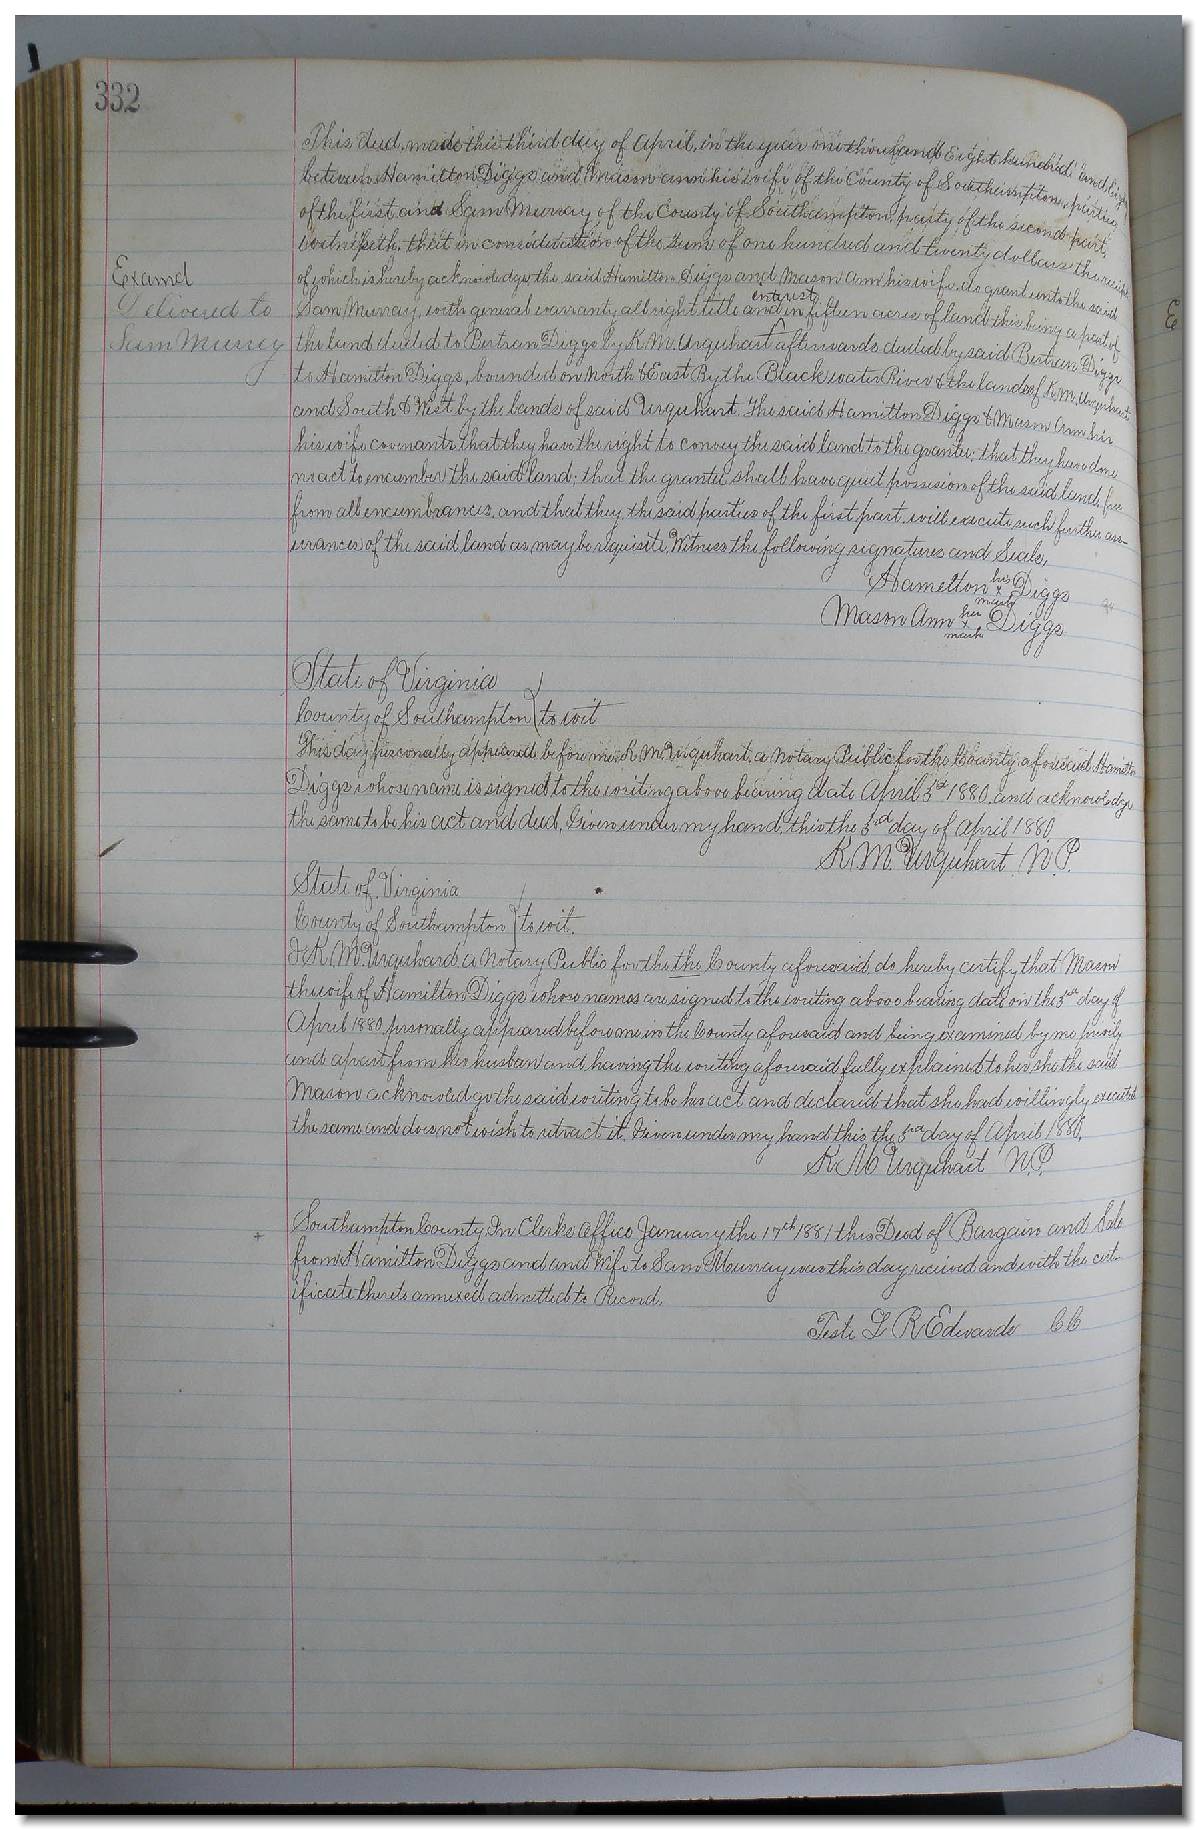 332
This deed, made this third day of April, in the year one thousand Eight hundred and Eighty
between Hamilton Diggs and Mason ann his wife of the County of Southampton, parties
of the first and Sam Murray of the County of Southampton party of the second part,
Witnesseth, that in consideration of the sum of one hundred and twenty dollars the receipt
Examd
of which is hereby acknowledge the said Hamilton Diggs and Mason Ann his wife do grant unto the said
Delivered to
Sam Murray, with general warranty all right title and interest in fifteen acres of land this being a part of
Sam Murrey
the land deeded to Bertran Diggs by K. M. Urquhart afterwards deeded by said Bertran Diggs
to Hamilton Diggs, bounded on North & East By the Black water River & the lands of K. M. Urquhart
and South & West by the lands of said Urquhart. The said Hamilton Diggs & Mason Ann his
his wife covenants that they have the right to convey the said land to the grantee; that they have done
no act to encumber the said land; that the grantee shall have quiet possesion of the said land, free
from all encumbrances, and that they the said parties of the first part, will execute such further ass-
urances of the said land as may be requisite. Witness the following signatures and Seals.
Hamelton his x mark Diggs
Mason Ann her x mark Diggs
State of Virginia
County of Southampton } to wit
This day personally appeared before me K. M. Urquhart, a Notary Public for the County aforesaid Hamilton
Diggs whose name is signed to the writing above bearing date April 3rd 1880, and acknowledge
the same to be his act and deed. Given under my hand, this the 3rd day of April 1880
K. M. Urquhart N. P.
State of Virginia
County of Southampton } to wit.
I K. M. Urquhard a Notary Public for the the County aforesaid, do hereby certify that Mason
the wife of Hamilton Diggs whose names are signed to the writing above bearing date on the 3rd day of
April 1880, personally appeared before me in the County aforesaid and being examined by me privily
and apart from her husband and having the writing aforesaid fully explained to her she the said
Mason acknowledge the said writing to be her act and declared that she had willingly executed
the same and does not wish to retract it. Given under my hand this the 3rd day of April 1880.
K. M Urquhart N. P.
Southampton County In Clerks Office January the 17th 1881 this Deed of Bargain and Sale
from Hamilton Diggs and and Wife to Sam Murray was this day received and with the cert-
ificate thereto annexed admitted to Record.
Teste L R Edwards CC